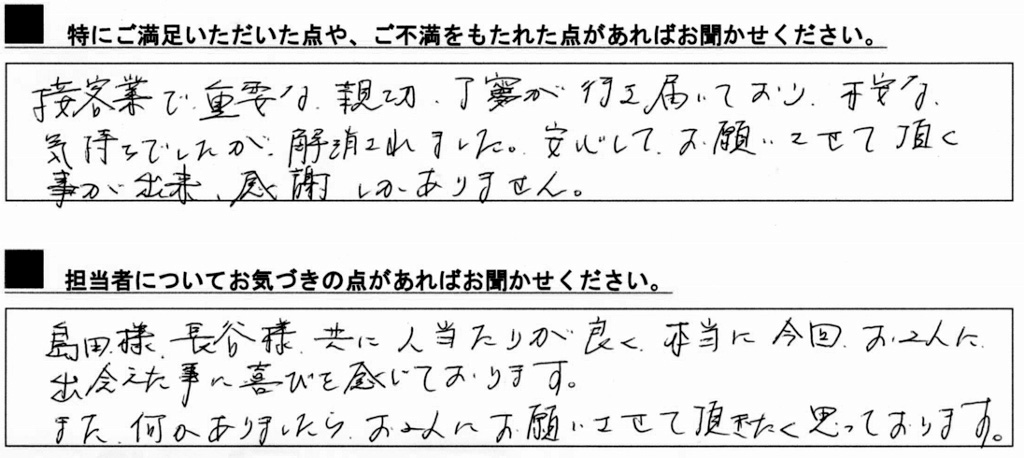 特にご満足いただいた点や、ご不満をもたれた点があればお聞かせください。
接客業で重要な、親切、丁寧が行き届いており、不安な
気持ちでしたが、解消されました。安心して、お願いさせて頂く
事が出来、感謝しかありません。
担当者についてお気づきの点があればお聞かせください。
島田様、長谷様、共に人当たりが良く、本当に今回、お2人に
出会えた事に喜びを感じております。
また、何かありましたら、お2人にお願いさせて頂きたく思っております。